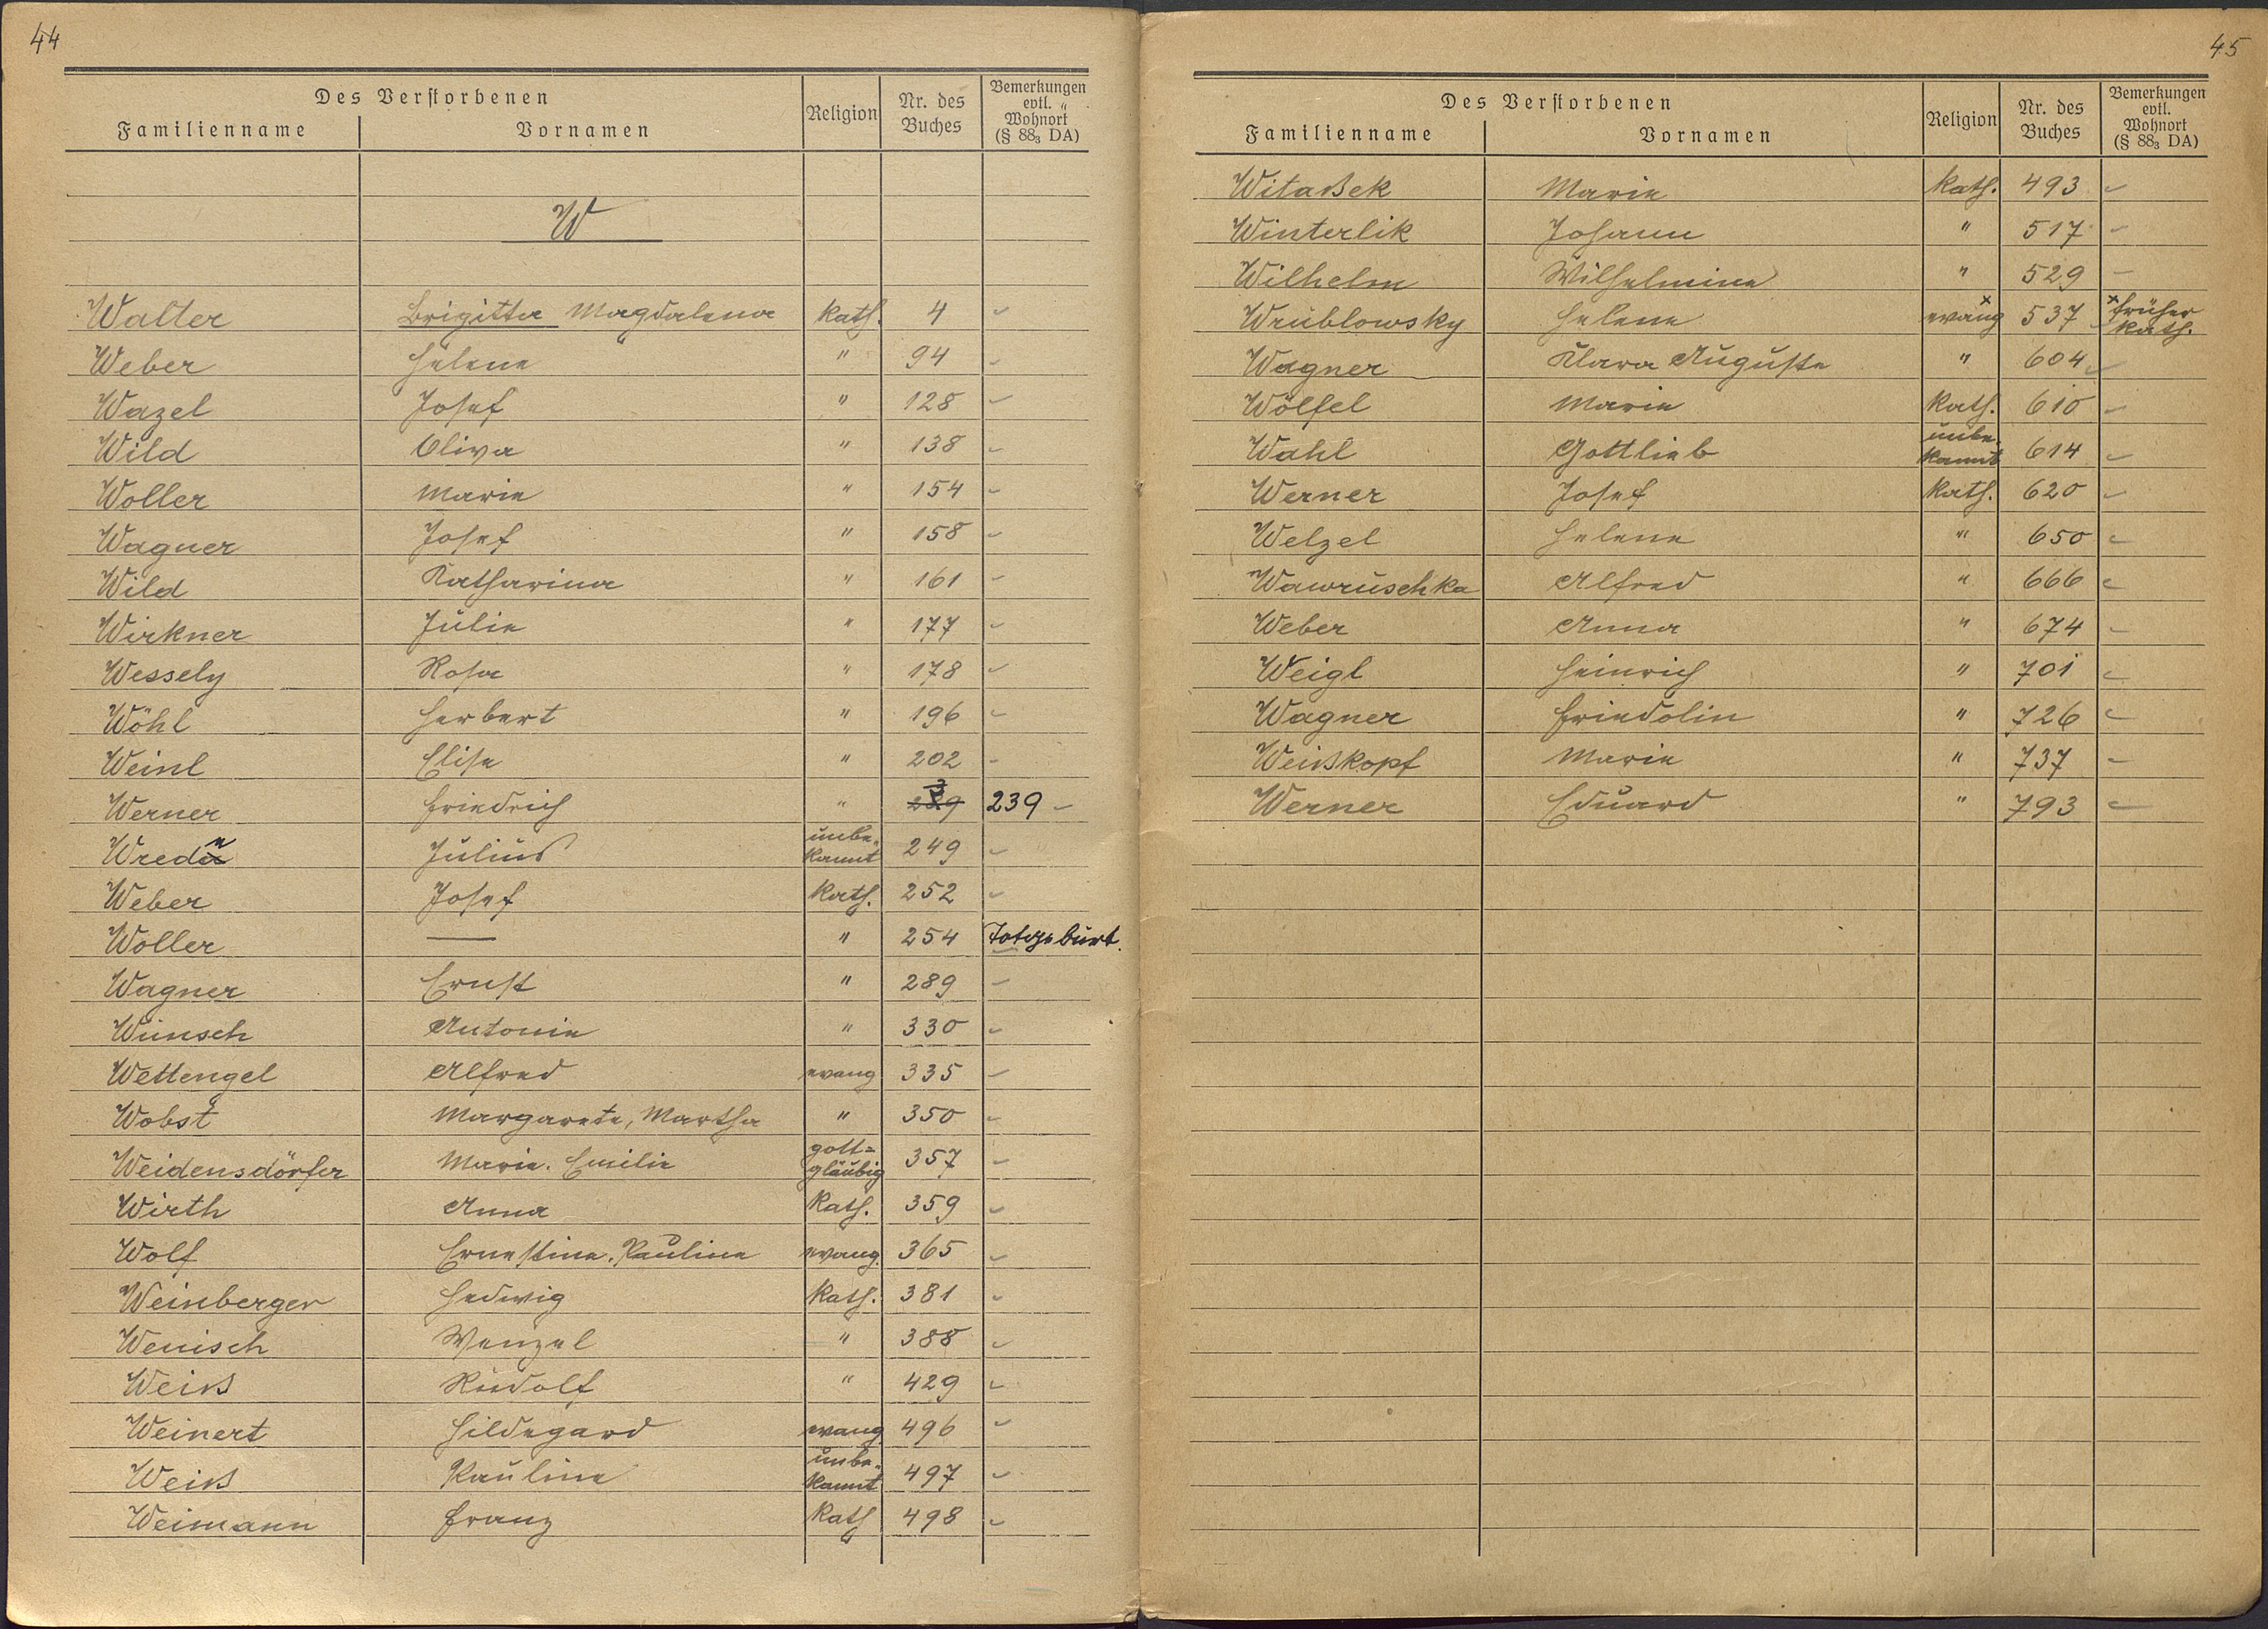 44
Des Verstorbenen
Familienname Vornamen Religion Nr. des Buches Bemerkungen evtl. Wohnort (§ 88₃ DA)
W
Walter Brigitta Magdalena kath. 4
Weber Helene " 94
Wazel Josef " 128
Wild Oliva " 138
Woller Marie " 154
Wagner Josef " 158
Wild Katharina " 161
Wirkner Julie " 177
Wessely Rosa " 178
Wöhl Herbert " 196
Weinl Elise " 202
Werner Friedrich " 239 –
Wrede Julius unbe-kannt 249
Weber Josef kath. 252
Woller — " 254 Totgeburt.
Wagner Ernst " 289
Wunsch Antonie " 330
Wettengel Alfred evang 335
Wobst Margarete, Martha " 350
Weidensdörfer Marie. Emilie gott=gläubig 357
Wirth Anna kath. 359
Wolf Ernestine. Pauline evang. 365
Weinberger Hedwig kath. 381
Wenisch Wenzel " 388
Weiß Rudolf " 429
Weinert Hildegard evang 496
Weiß Pauline unbe-kannt 497
Weimann Franz kath 498
45
Des Verstorbenen
Familienname Vornamen Religion Nr. des Buches Bemerkungen evtl. Wohnort (§ 88₃ DA)
Witaßek Marie kath. 493
Winterlik Johann " 517
Wilhelm Wilhelmine " 529
Wrublowsky Helene evang x 537 x früher kath.
Wagner Klara Auguste " 604
Wölfel Marie kath. 610
Wahl Gottlieb unbe-kannt 614
Werner Josef kath. 620
Welzel Helene " 650
Wawruschka Alfred " 666
Weber Anna " 674
Weigl Heinrich " 701
Wagner Friedolin " 726
Weißkopf Marie " 737
Werner Eduard " 793